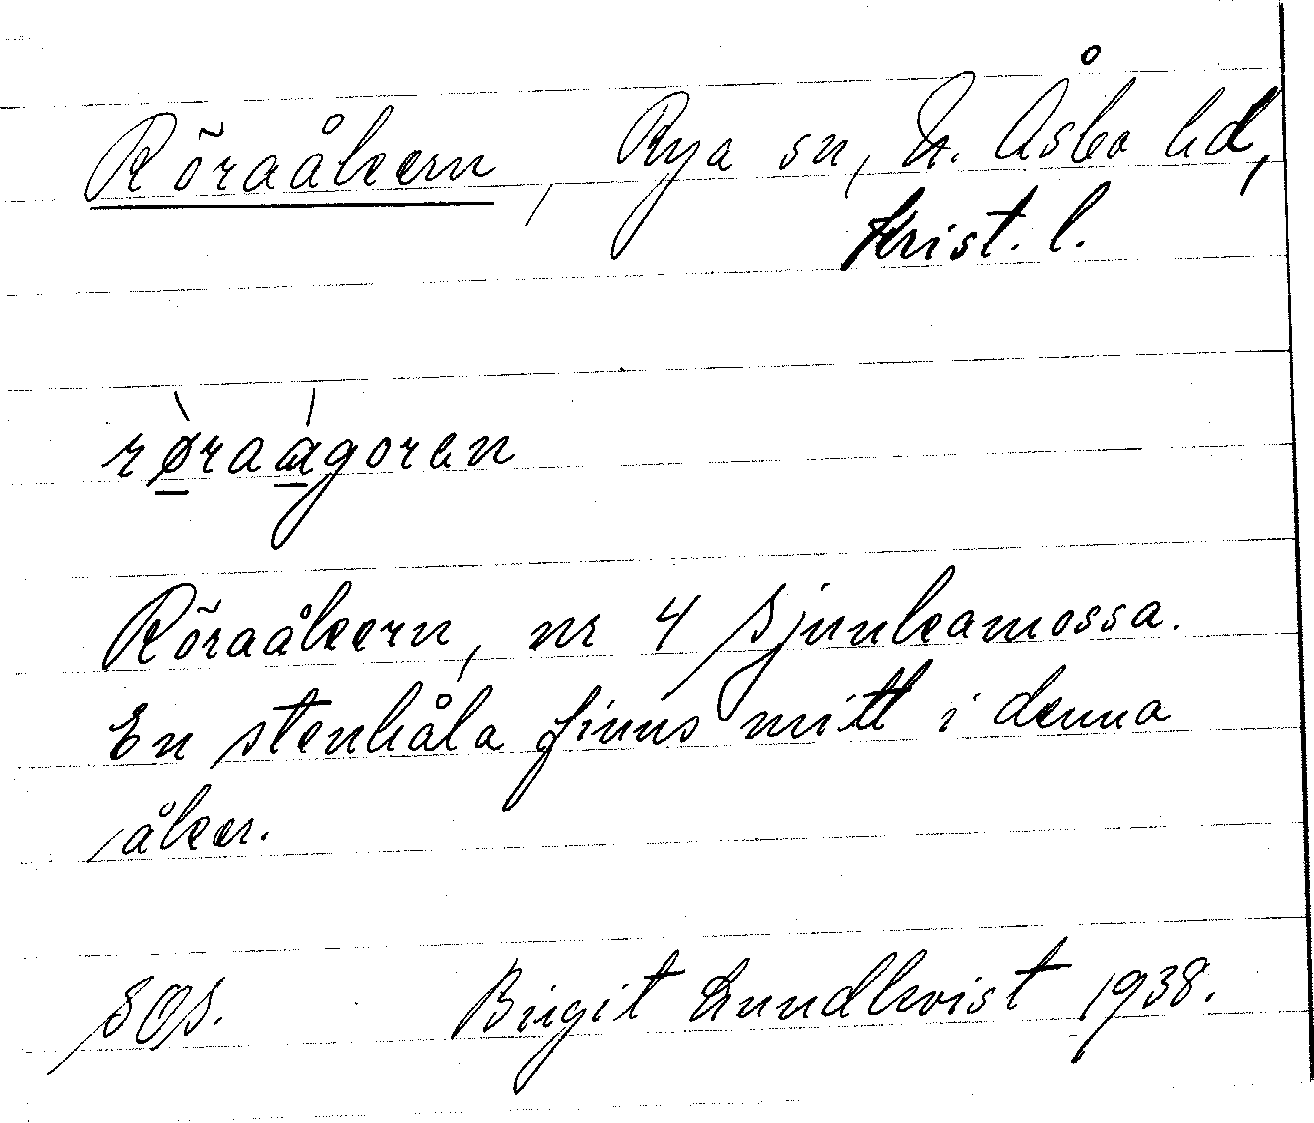 Röraåkern, Rya sn, N. Åsbo hd,
Krist. l.
rø̀raágoren
Röraåkern, nr 4 Sjunkamossa.
En stenhåla finns mitt i denna
åker.
SOS. Birgit Lundkvist 1938.